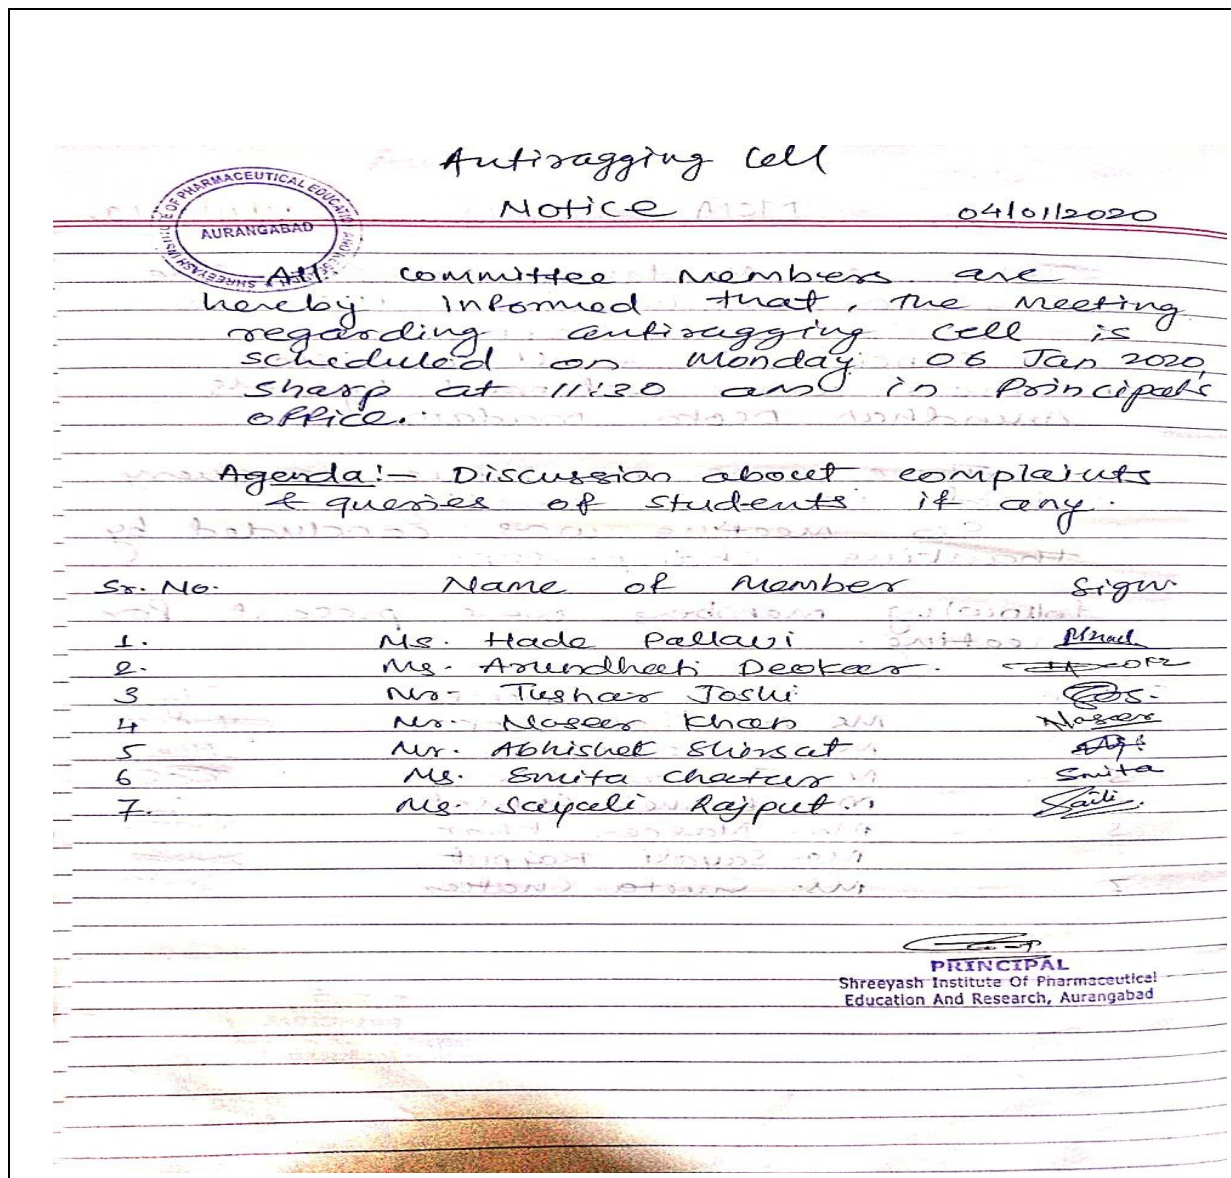 Antiragging Cell
Notice
04/01/2020
SHREEYASH INSTITUTE OF PHARMACEUTICAL EDUCATION AND
AURANGABAD
All committee members are
hereby informed that, the meeting
regarding antiragging cell is
scheduled on Monday 06 Jan 2020,
sharp at 11:30 am in Principal's
office.
Agenda:- Discussion about complaints
& queries of students if any.
Sr. No. Name of Member Sign
1. Ms. Hade Pallavi
2. Ms. Arundhati Deokar.
3 Mr. Tushar Joshi
4 Mr. Naseer Khan Naseer
5 Mr. Abhishek Shirsat
6 Ms. Smita Chatur Smita
7. Ms. Sayali Rajput.
PRINCIPAL
Shreeyash Institute Of Pharmaceutical
Education And Research, Aurangabad